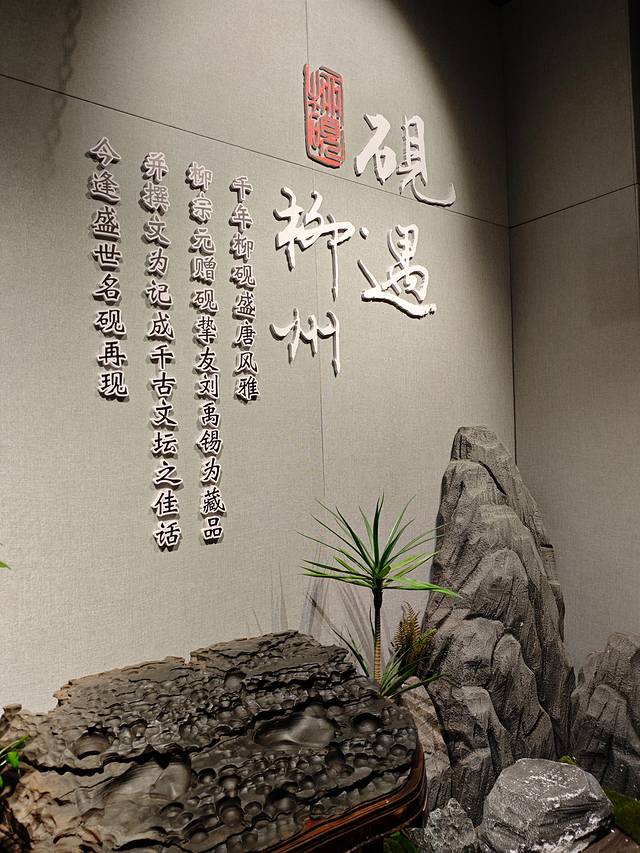 砚遇
柳州
柳砚
千年柳砚盛唐风雅
柳宗元赠砚挚友刘禹锡为藏品
并撰文为记成千古文坛之佳话
今逢盛世名砚再现